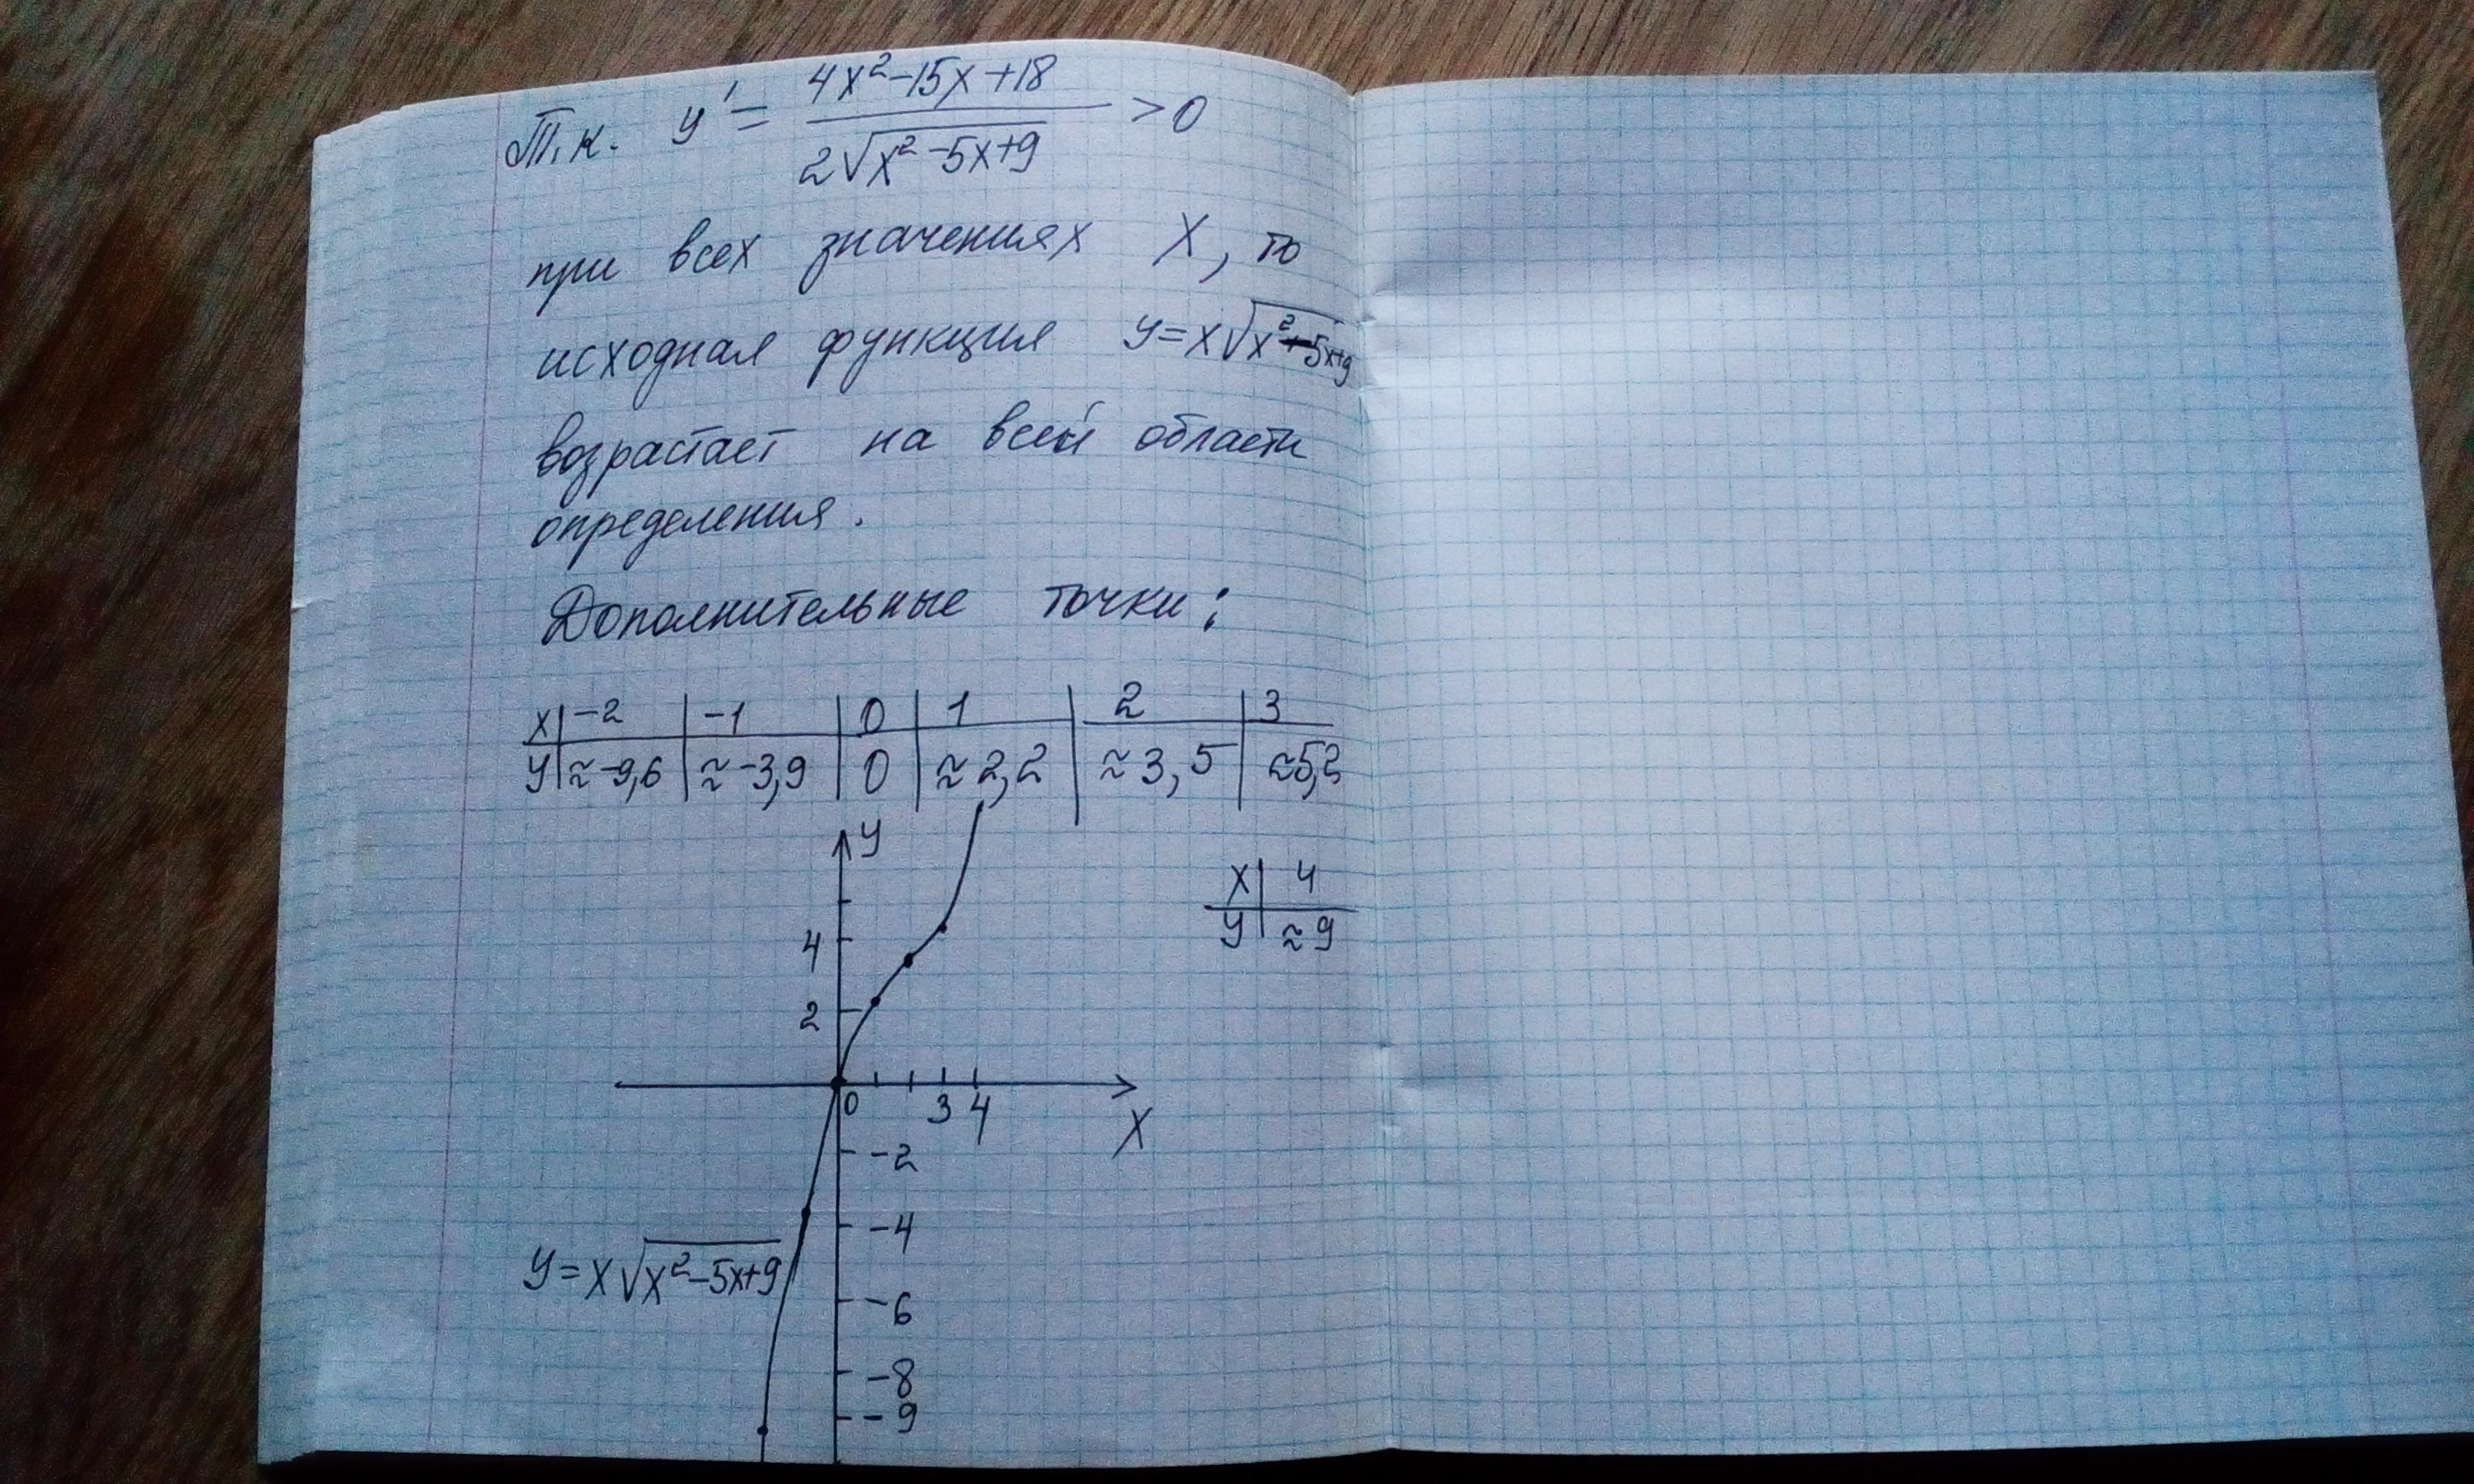 Т.к. y' = (4x²-15x+18)/(2√(x²-5x+9)) > 0
при всех значениях X, то
исходная функция y=x√(x²-5x+9)
возрастает на всей области
определения.
Дополнительные точки:
x | -2 | -1 | 0 | 1 | 2 | 3
y | ≈-9,6 | ≈-3,9 | 0 | ≈2,2 | ≈3,5 | ≈5,2
y
x | 4
y | ≈9
4
2
0 3 4
X
-2
-4
y=x√(x²-5x+9)
-6
-8
-9